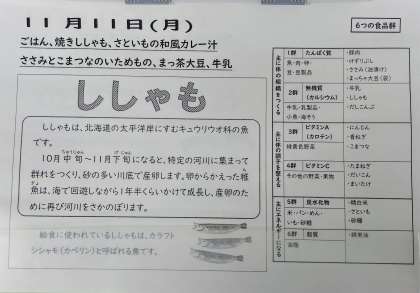 11月11日(月)
ごはん、焼きししゃも、さといもの和風カレー汁
ささみとこまつなのいためもの、まっ茶大豆、牛乳
ししゃも
ししゃもは、北海道の太平洋岸にすむキュウリウオ科の魚で
す。
10月中旬~11月下旬になると、特定の河川に集まって
群れをつくり、砂の多い川底で産卵します。卵からかえった稚
魚は、海で回遊しながら1年半くらいかけて成長し、産卵のた
めに再び河川をさかのぼります。
給食に使われているししゃもは、カラフト
シシャモ(カペリン)と呼ばれる魚です。
6つの食品群
主に体の組織をつくる
1群 たんぱく質
魚・肉・卵・
豆・豆製品
・豚肉
・けずりぶし
・ささみ(油漬け)
・まっちゃ大豆(袋)
2群 無機質
(カルシウム)
牛乳・乳製品・
小魚・海そう
・牛乳
・ししゃも
・だしこんぶ
主に体の調子を整える
3群 ビタミンA
(カロテン)
緑黄色野菜
・にんじん
・青ねぎ
・こまつな
4群 ビタミンC
その他の野菜・果物
・たまねぎ
・だいこん
・まいたけ
主にエネルギーになる
5群 炭水化物
米・パン・めん・
いも・砂糖
・精白米
・さといも
・砂糖
6群 脂質
油脂